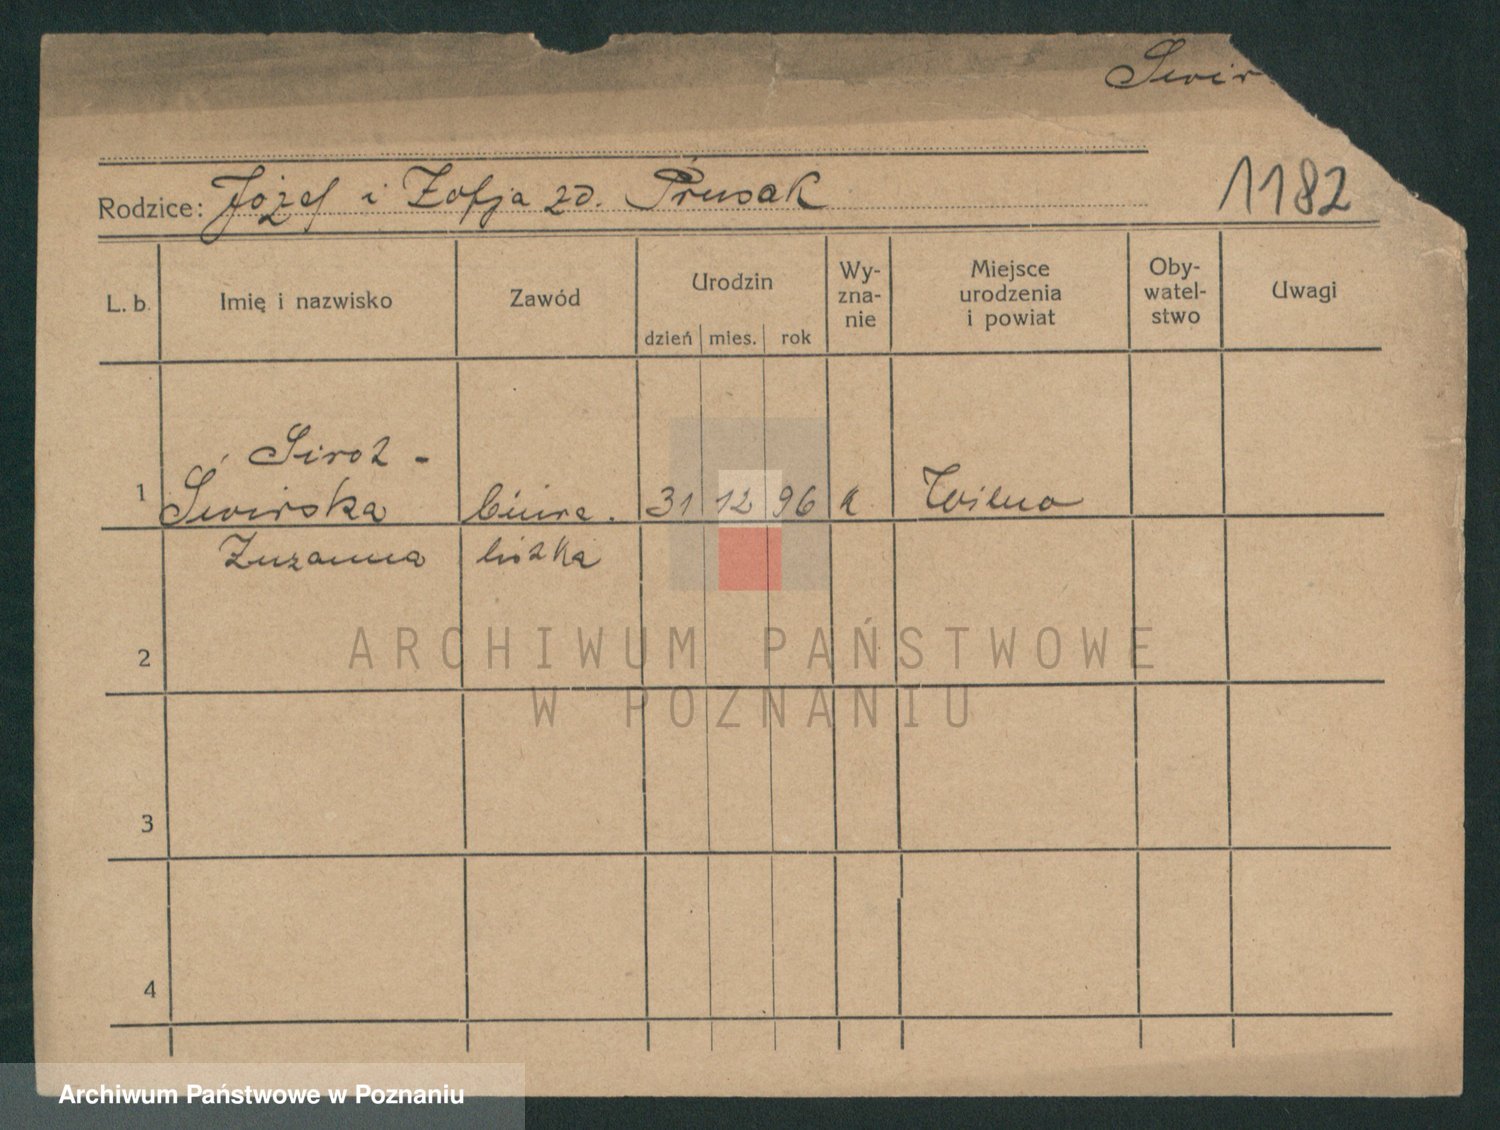 Świr
Rodzice: Józef i Zofja zd. Prusak
1182
L. b.
Imię i nazwisko
Zawód
Urodzin
dzień mies. rok
Wy-
zna-
nie
Miejsce
urodzenia
i powiat
Oby-
watel-
stwo
Uwagi
Siroż -
1 Świrska biura. 31 12 96 k Wilno
Zuzanna
2
3
4
ARCHIWUM PAŃSTWOWE
W POZNANIU
Archiwum Państwowe w Poznaniu